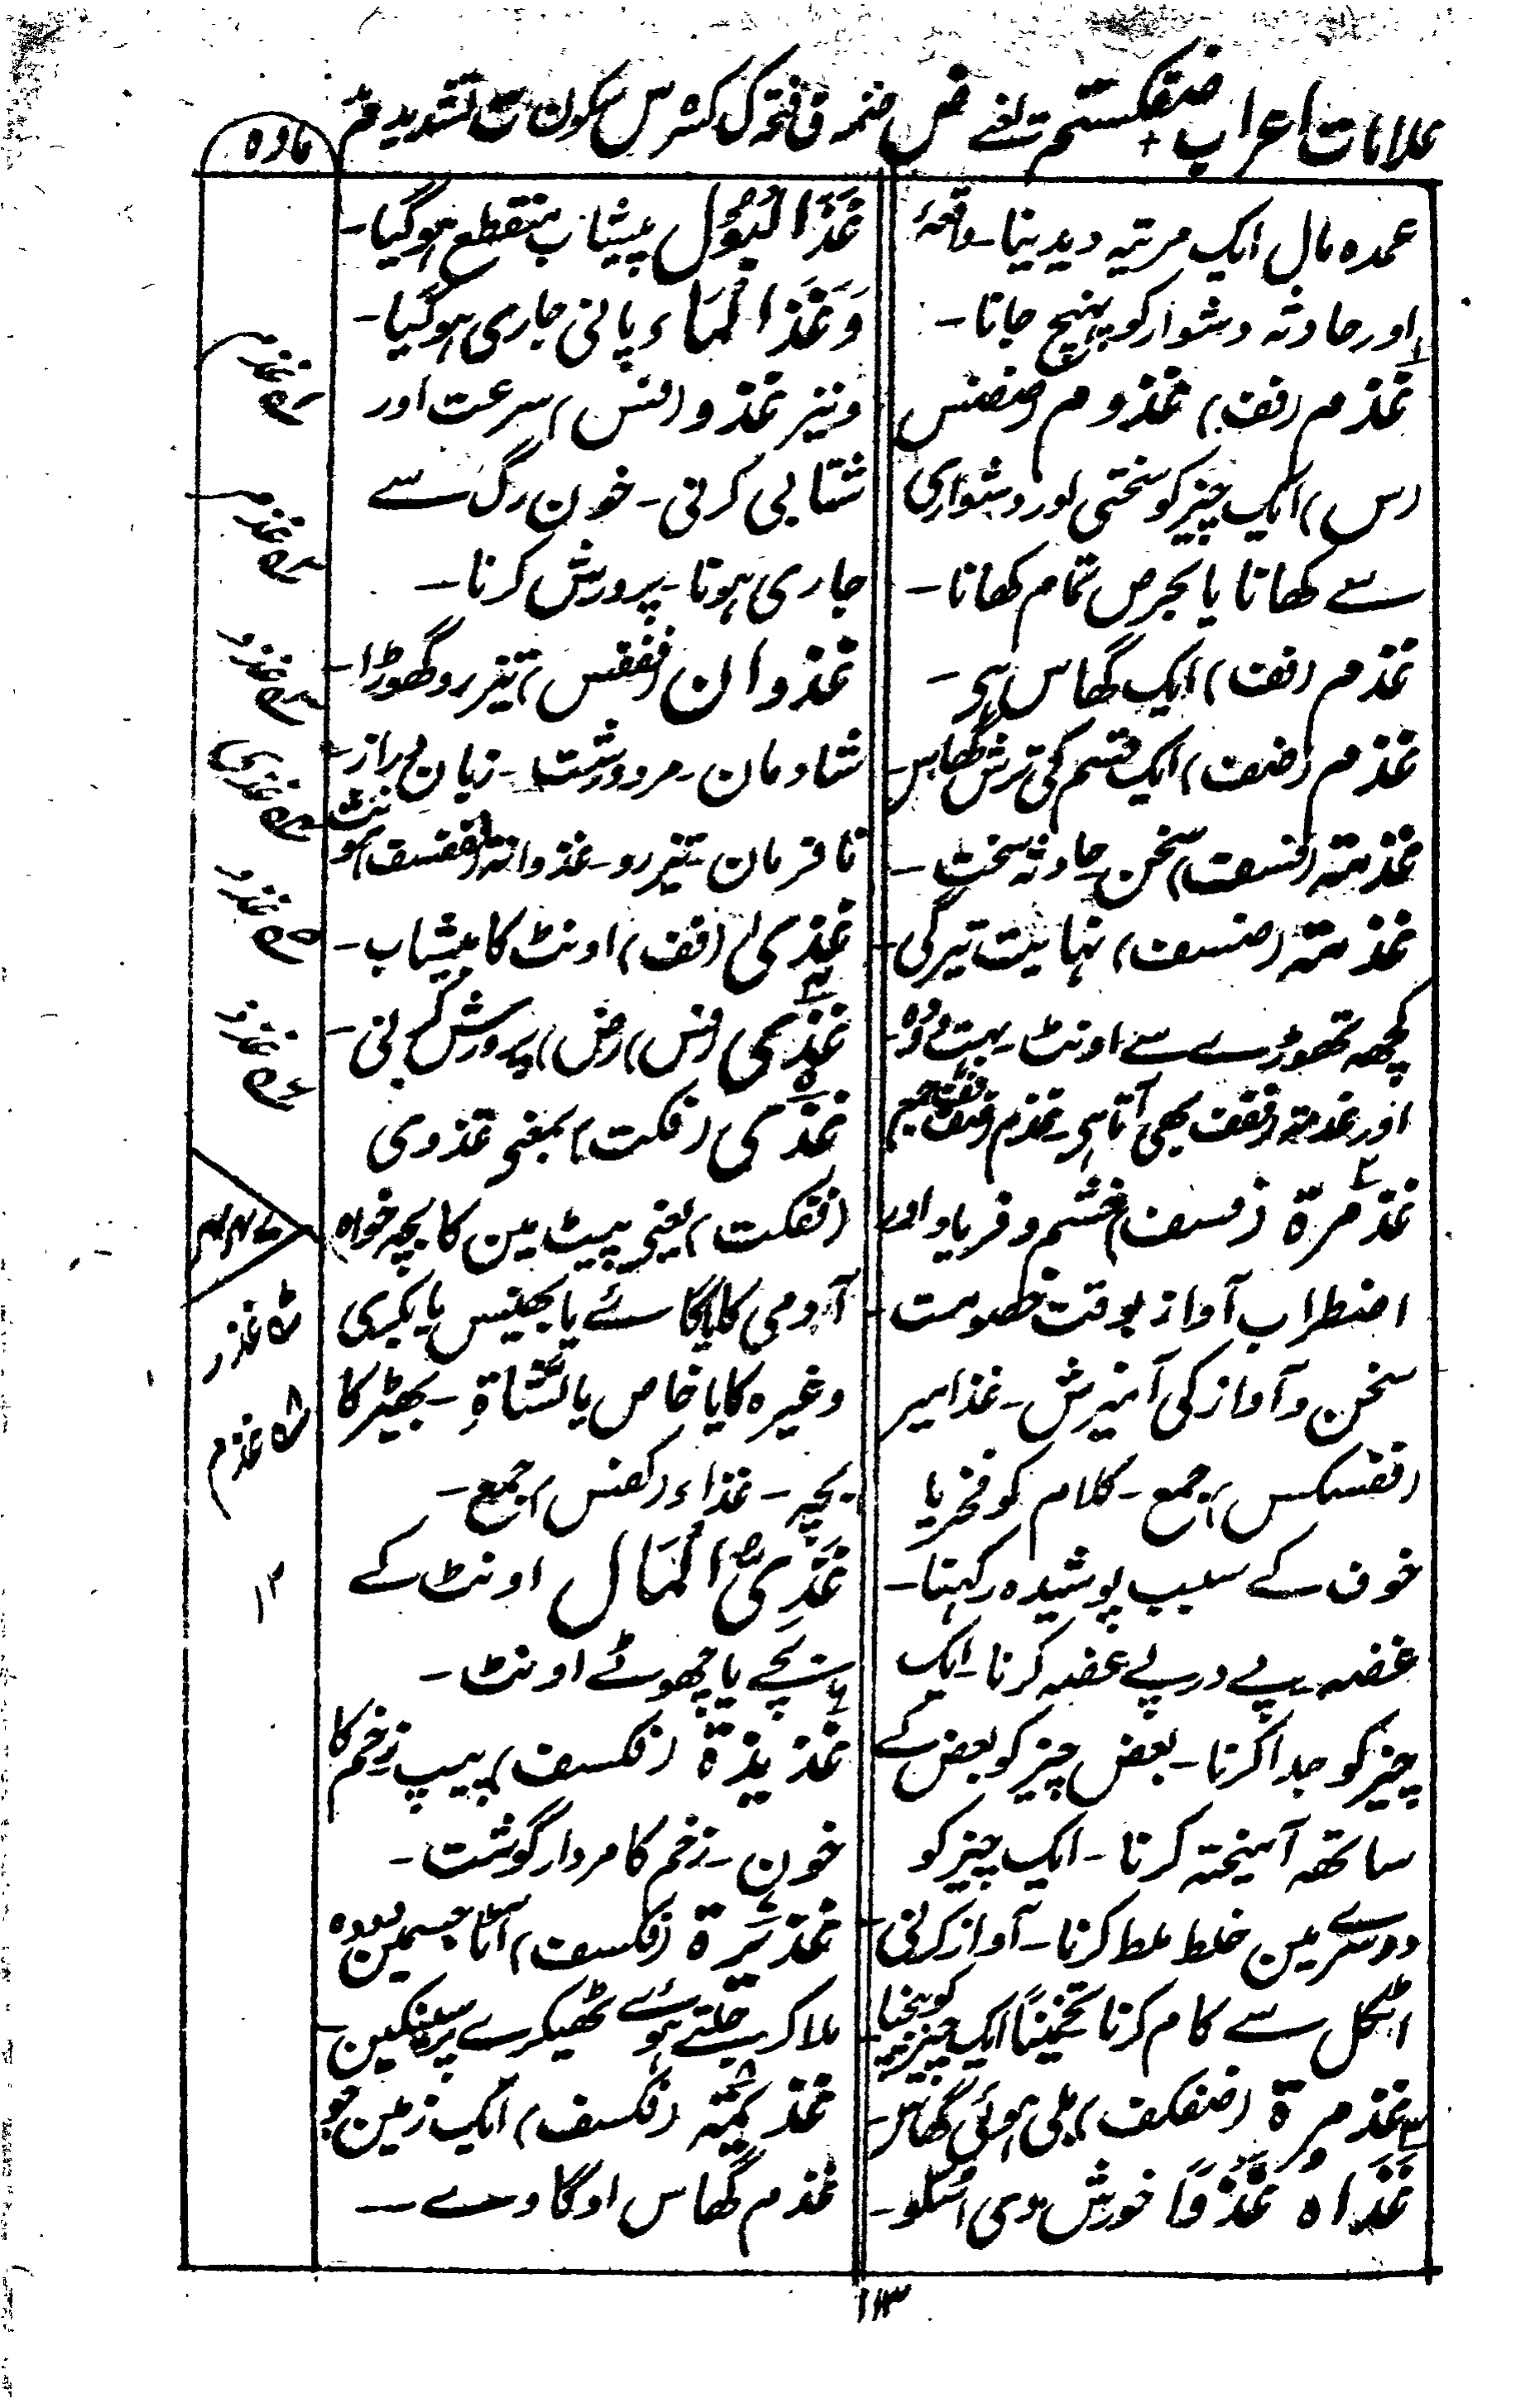 علامات اعراب ضفکستم یعنے ض ضمہ ف فتحہ ک کسرہ س سکون ت تشدید م
مادہ
عمدہ مال ایک مرتبہ دیدینا۔ واقعۂ
اور حادثہ دشوار کو پہنچ جانا۔
غذم (فف) غذوم (ضضس
(س) ایک چیز کو سختی اور دشواری
سے کھانا یا بحرص تمام کھانا۔
غذم (فف) ایک گھاس ہی۔
غذم (ضف) ایک قسم کی ترش گھاس۔
غذمتہ (فسف) سخن حادثہ سخت۔
غذمتہ (ضسف) نہایت تیرگی۔
کچھ تھوڑے سے اونٹ۔ بہت دودہ۔
اور غذمتہ (ففف بھی آتا ہی۔ غذم
غذمرۃ (فسف) خشم و فریاد اور
اضطراب آواز بوقت خصومت۔
سخن و آواز کی آمیزش۔ غذامیر
(ففسکس) جمع۔ کلام کو فخر یا
خوف کے سبب پوشیدہ رکہنا۔
غصہ۔ پے درپے غصہ کرنا۔ ایک
چیز کو جدا کرنا۔ بعض چیز کو بعض کے
ساتھہ آمیختہ کرنا۔ ایک چیز کو
دوسرے مین خلط ملط کرنا۔ آواز کرنی۔
اٹکل سے کام کرنا تخمیناً ایک چیز کو بیچنا
غذمرۃ (ضفکف) ملی ہوئی گھاس۔
غَذَاہ غَذْوًا خورش دی اُسکو۔
غَذَا الْبَوْلُ پیشاب منقطع ہوگیا۔
وَغَذَا الْمَاء پانی جاری ہوگیا۔
ونیز غذو (فس) سرعت اور
شتابی کرنی۔ خون رگ سے
جاری ہونا۔ پرورش کرنا۔
غذوان (ففس) تیز رو گھوڑا۔
شادمان۔ مرد درشت۔ زبان دراز۔
نافرمان۔ تیز رو۔ غذوانتہ (ففسف) مونث
غذی (فف) اونٹ کا پیشاب۔
غذی (فس) (ض) پرورش کرنی۔
غذی (فکت) بمعنی غذوی
(ففکت) یعنی پیٹ مین کا بچہ خواہ
آدمی کا یا گائے یا بھینس یا بکری
وغیرہ کا یا خاص یا لشّاۃِ۔ بھیڑ کا
بچہ۔ غذاء (کفس) جمع۔
غَذِیُّ الْمَال اونٹ کے
بچے یا چھوٹے اونٹ۔
غذیذۃ (فکسف) پیپ زخم کا
خون۔ زخم کا مردار گوشت۔
غذیرۃ (فکسف) آٹا جسمین دودہ
ملا کر جلتے ہوئے ٹھیکرے پر سینکین۔
غذیمتہ (فکسف) ایک زمین جو
غذم گھاس اوگا وے۔
۱ غذمر
۲ غذم
۳ غذو
۴ غذی
۵ غذو
۶ غذذ
۷ غذر
۸ غذم
۱۲
۱۱۳